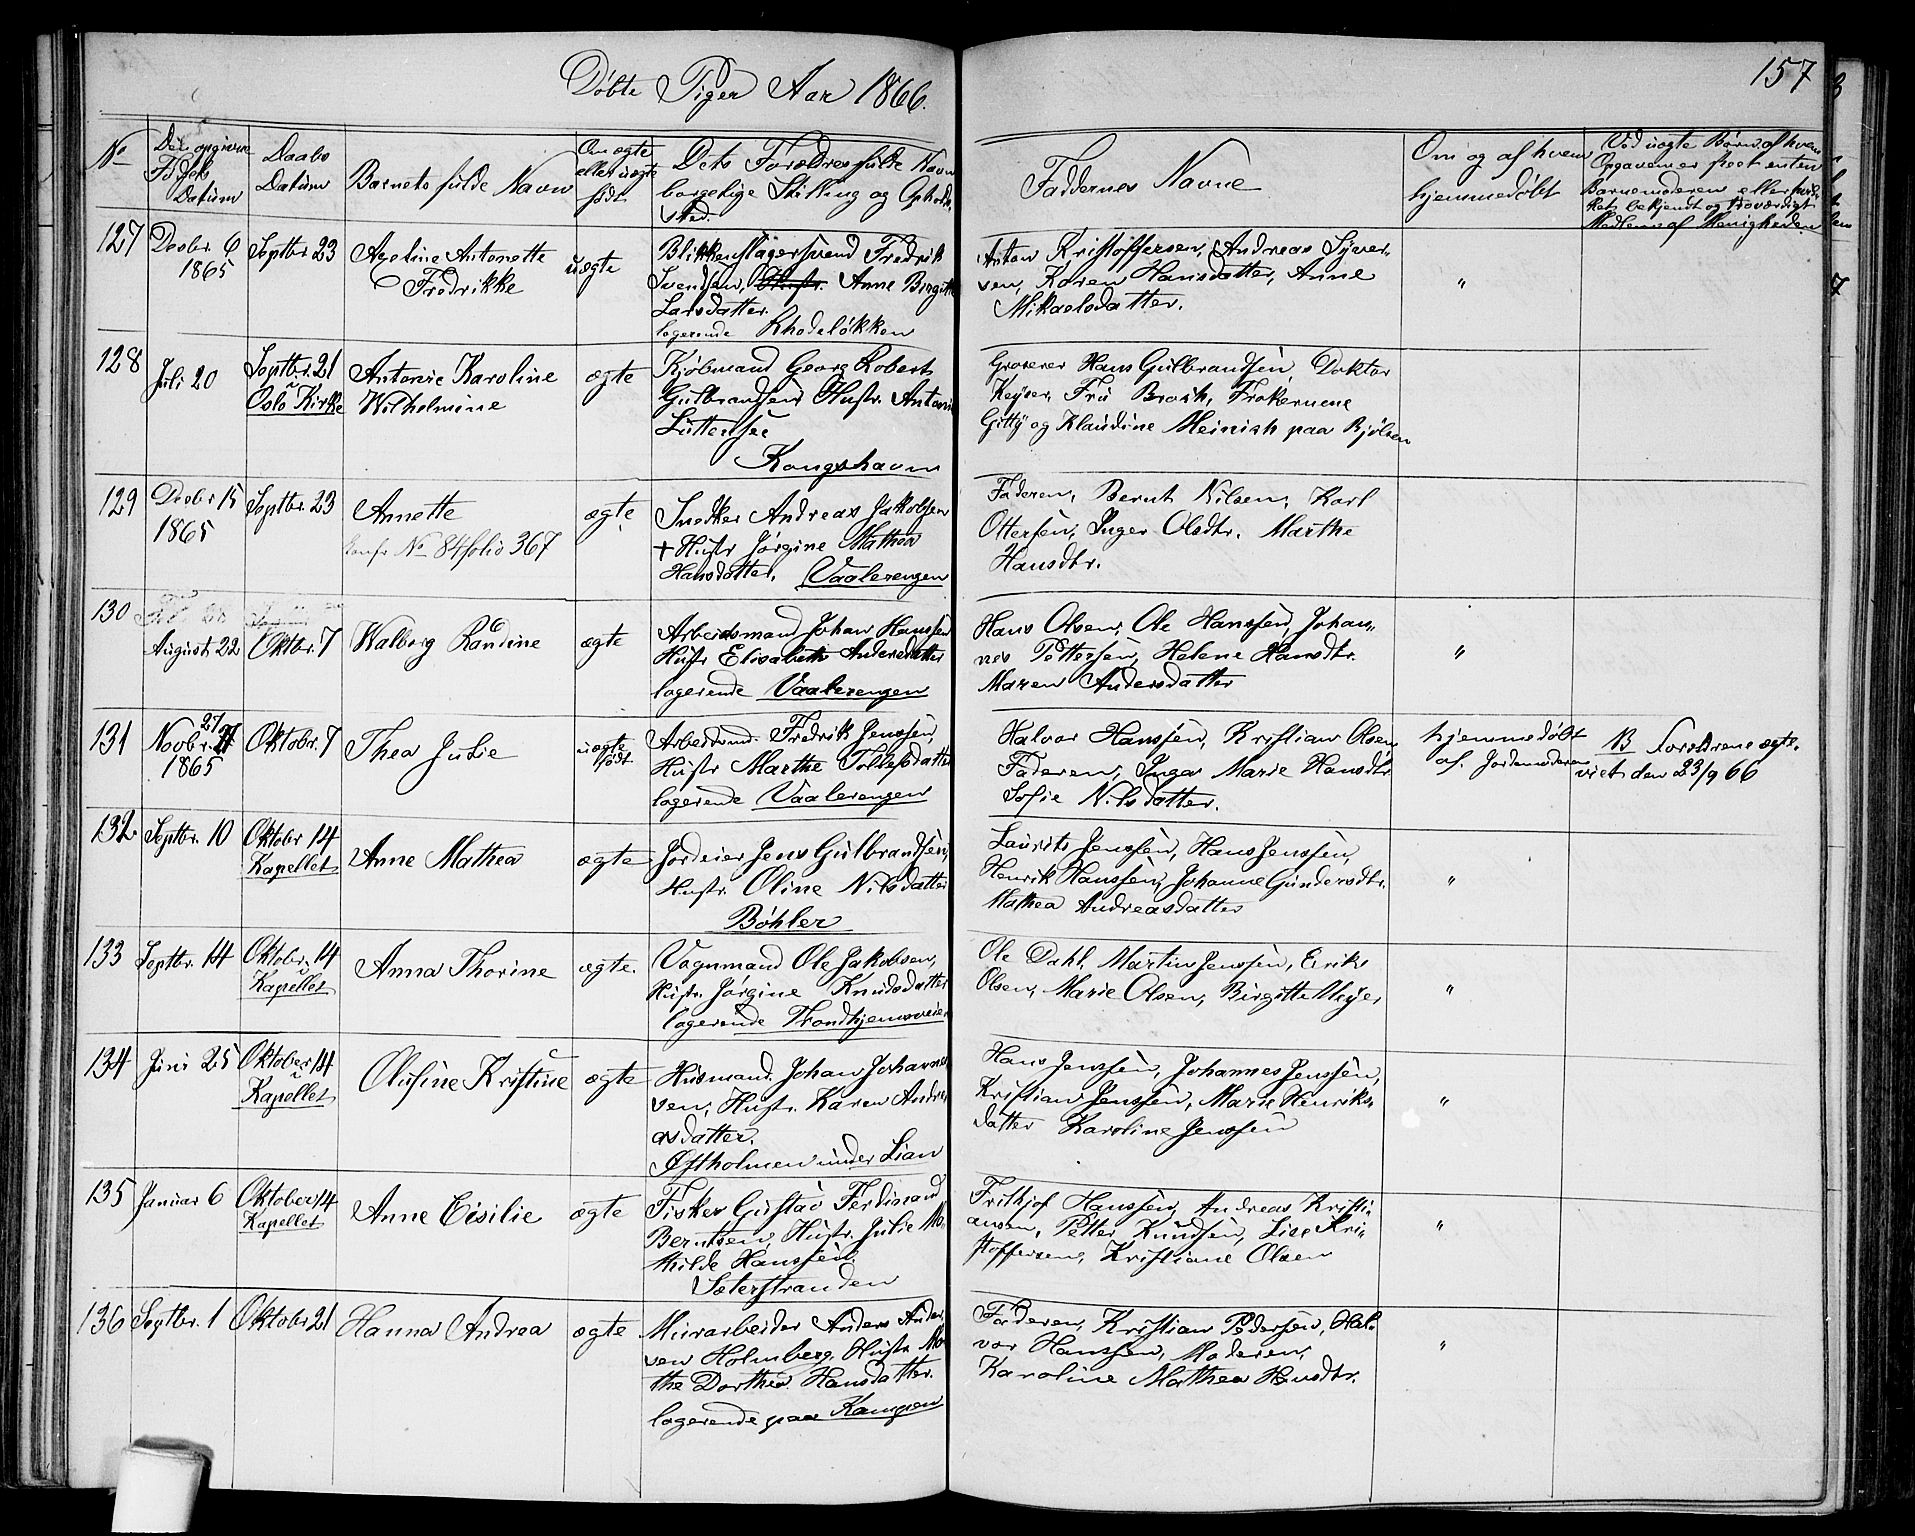 Døbte Piger Aar 1866.
157
No
Det opgivne
Fødsels
Datum
Daabs
Datum
Barnets fulde Navn
Om ægte
eller uægte
født
Dets Forældres fulde Navn
borgelige Stilling og Opholds
sted.
Faddernes Navne
Om og af hvem
hjemmedøbt
Ved uægte Børn af hvem
Opgaven er skeet enten
Barnemoderen eller
bekjendt og troværdigt
Medlem af Menigheden
127
Decbr. 6
1865
Septbr 23
Ageline Antonette
Fredrikke
uægte
Blikkenslagersvend Fredrik
Svendsen, Hustr. Anne Birgitte
Larsdatter.
logerende Rhodeløkken
Anton Kristoffersen, Andreas Syver-
sen, Karen Hansdatter, Anne
Mikaelsdatter.
"
128
Juli 20
Septbr. 21
Oslo Kirke
Antonie Karoline
Wilhelmine
ægte
Kjøbmand Georg Robert
Gulbrandsen Hustr. Antonie
Luttensee
Kongshavn
Groserer Hans Gulbrandsen, Doktor
Keyser, Fru Brosh, Frøkernene
Gitty og Klaudine Meinish paa Bjølsen
129
Decbr 15
1865
Septbr. 23
Annette
konfr No 84 folio 367
ægte
Snedker Andreas Jakobsen
+ Hustr Jørgine Mathea
Hansdatter. Vaalerengen
Faderen, Bernt Nilsen, Karl
Ottersen, Inger Olsdtr. Marthe
Hansdtr.
130
August 22
Oktbr. 7
Walborg Randine
ægte
Arbeidsmand Johan Hanssen
Hustr Elisabeth Andersdatter
logerende Vaalerengen
Hans Olsen, Ole Hanssen, Johan-
nes Pettersen, Helene Hansdtr.
Maren Andersdatter
"
131
Novbr. 27
1865
Oktobr. 7
Thea Julie
uægte
født
Arbeidsmd. Fredrik Jenssen,
Hustr Marthe Tollefsdatter
logerende Vaalerengen
Halvor Hanssen, Kristian Olsen
Faderen, Inger Marie Hansdtr.
Sofie Nilsdatter.
hjemmedøbt
af Jordemoderen
B Forældrene ægte-
viet den 23/9 66
132
Septbr. 10
Oktobr 14
Kapellet
Anne Mathea
ægte
Jordeier Jens Gulbrandsen,
Hustr. Oline Nilsdatter
Bøhler
Laurits Jenssen, Hans Jenssen,
Henrik Hanssen, Johanne Gundersdtr.
Mathea Andreasdatter
"
133
Septbr. 14
Oktobr. 14
Kapellet
Anna Thorine
ægte.
Vognmand Ole Jakobsen,
Hustr. Jørgine Knudsdatter
logerende Trondhjemsveien
Ole Dahl, Martin Jenssen, Erik
Olsen, Marie Olsen, Birgitte Meyer
"
134
Juni 25
Oktober 14
Kapellet
Olufine Kristine
ægte
Husmand. Johan Johannes
sen, Hustr. Karen Andre-
asdatter.
Østholmen under Lian
Hans Jenssen, Johannes Jenssen,
Kristian Jenssen, Marie Henriks-
datter Karoline Jenssen
"
135
Januar 6
Oktober 14
Kapellet
Anne Cisilie
ægte
Fisker Gustav Ferdinand
Berntsen, Hustr. Julie Ma-
thilde Hanssen
Sæterstranden
Frithjof Hanssen, Andreas Kristi-
ansen, Petter Knudsen, Lise Kri-
stoffersen, Kristiane Olsen
"
136
Septbr. 1
Oktobr 21
Hanna Andrea
ægte
Murarbeider Anders Ander-
sen Holmberg, Hustr. Ma-
the Dorthea Hansdatter.
logerende paa Kampen
Faderen, Kristian Pedersen, Hal-
vor Hanssen, Moderen,
Karoline Mathea Hansdtr.
"